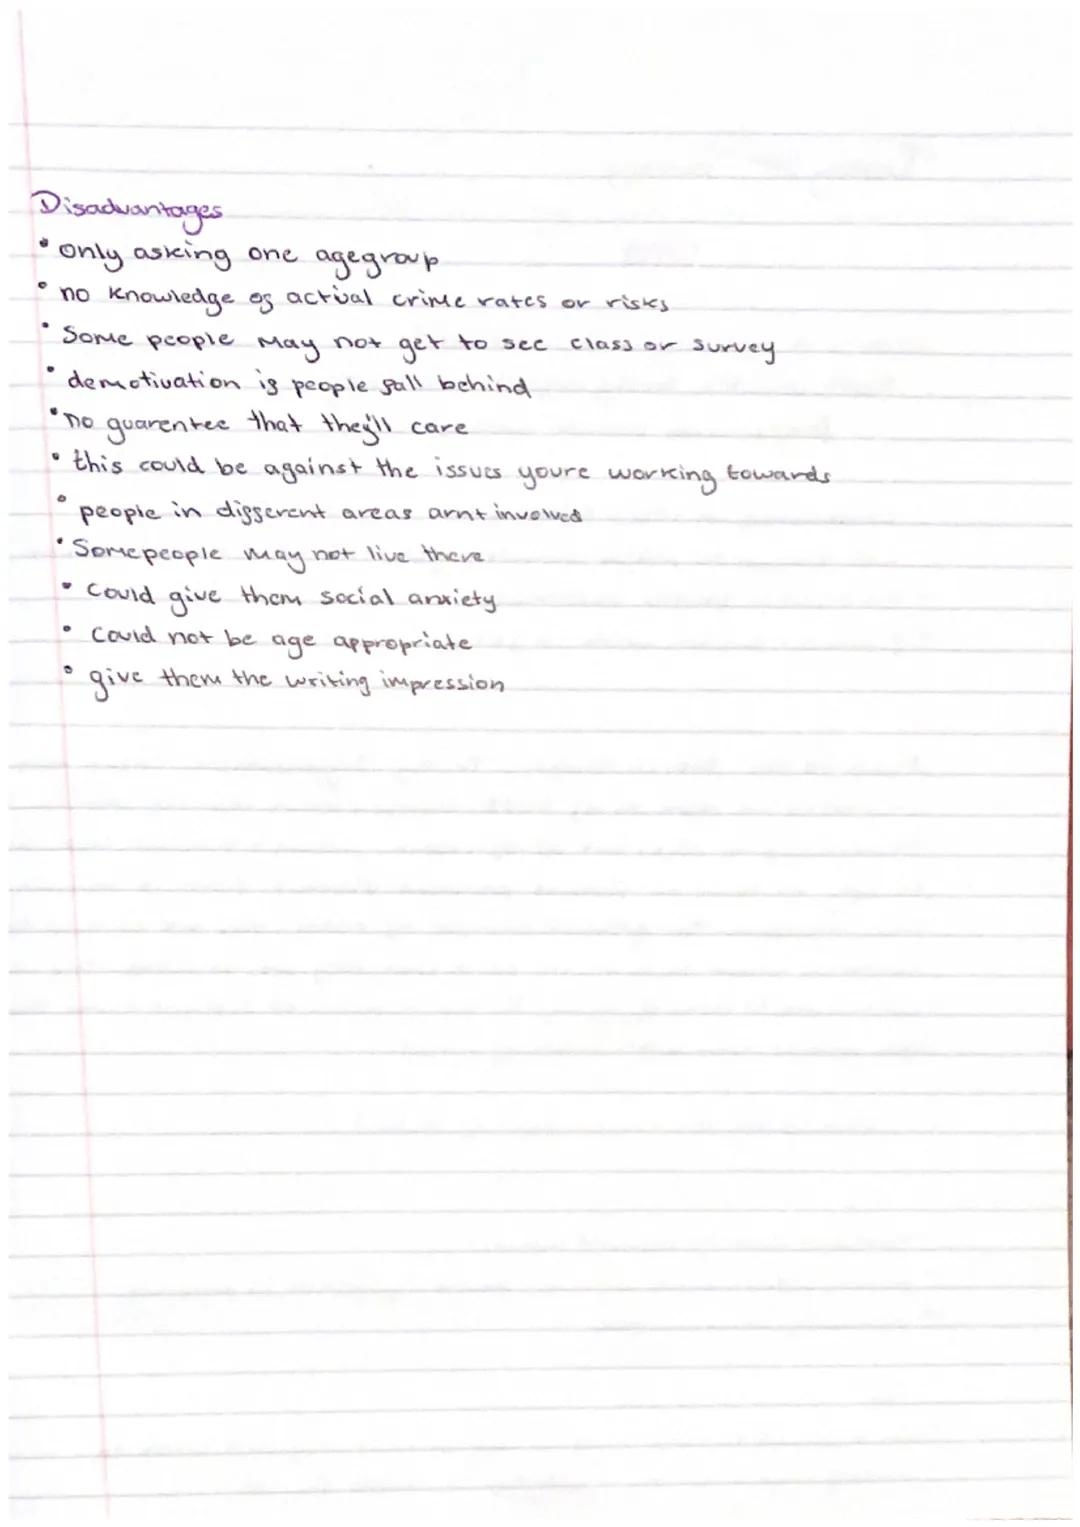 Disadvantages
• only asking one agegroup
• no knowledge of actual crime rates or risks
• Some people may not get to see class or survey
• demotivation if people fall behind
• no guarentee that they'll care
• this could be against the issues youre working towards
• people in different areas arnt involved
• Somepeople may not live there
• Could give them social anxiety
• Could not be age appropriate
• give them the writing impression